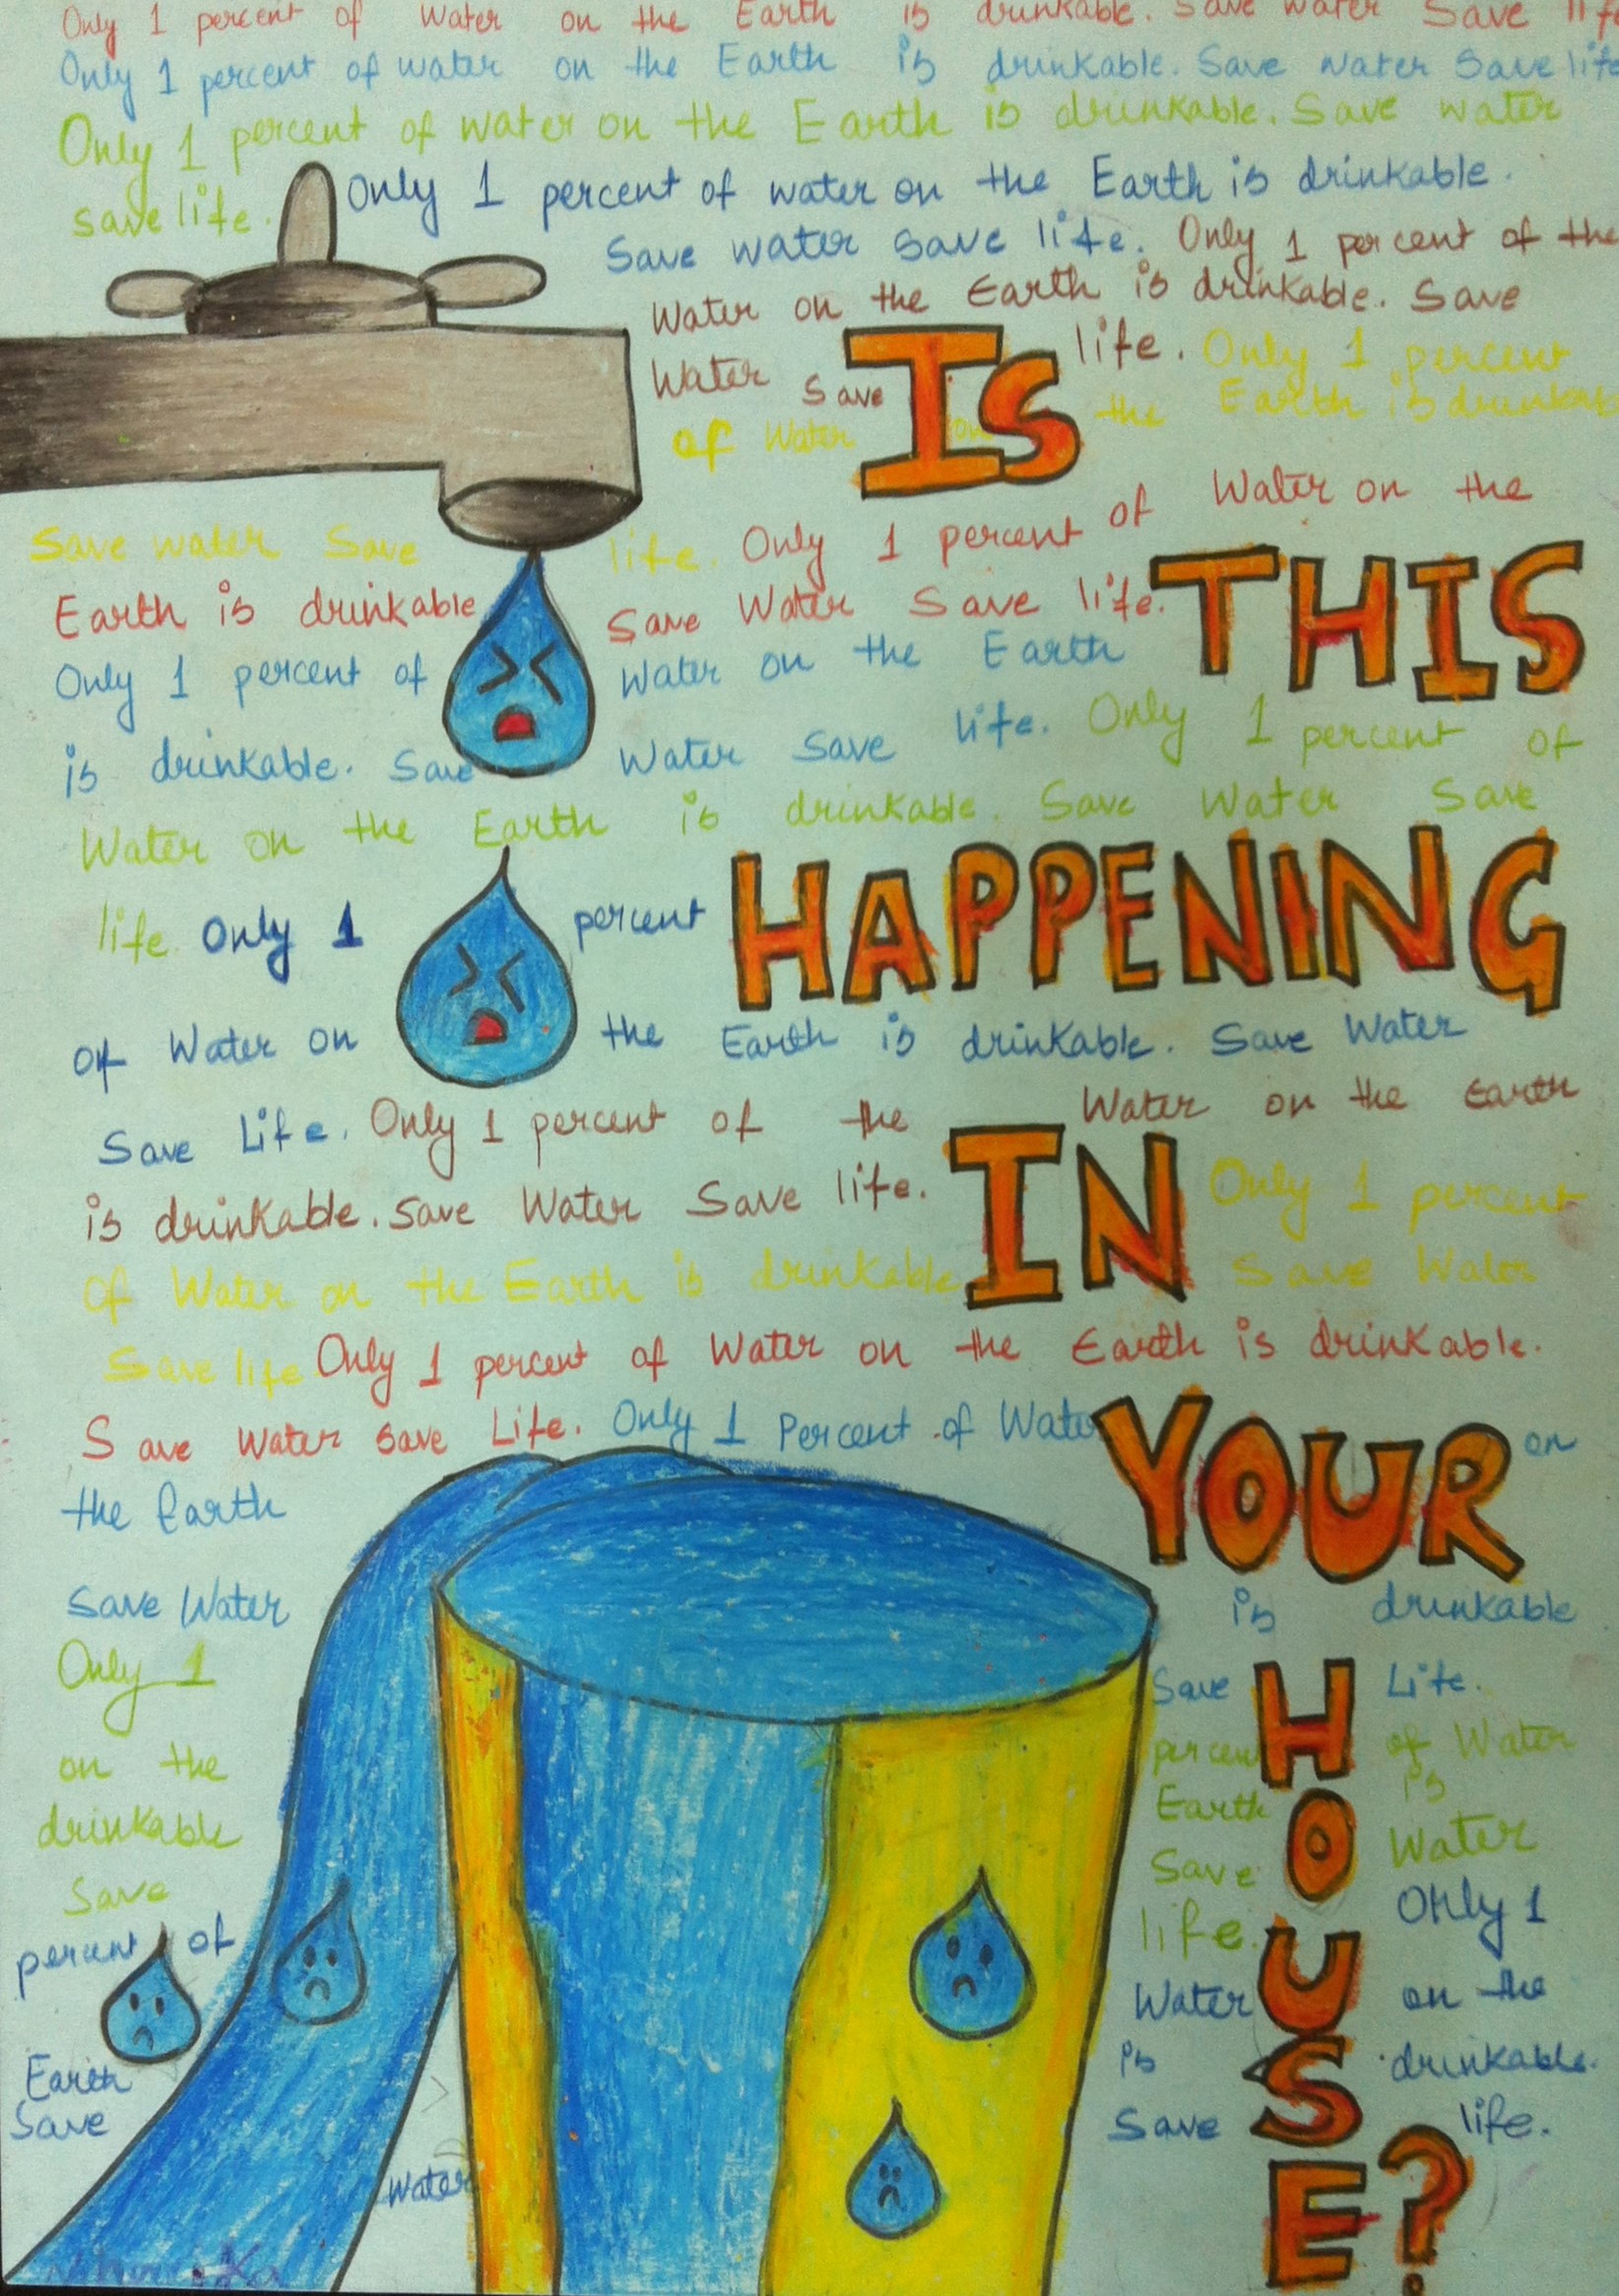 Only 1 percent of Water on the Earth is drinkable. Save water Save lif
Only 1 percent of water on the Earth is drinkable. Save water Save life
Only 1 percent of water on the Earth is drinkable. Save water
save life. Only 1 percent of water on the Earth is drinkable.
Save water save life. Only 1 percent of the
Water on the Earth is drinkable. Save
Water Save life. Only 1 percent
IS
of Water on the Earth is drinkabl
Save water Save life. Only 1 percent of Water on the
Earth is drinkable Save Water Save life.
THIS
Only 1 percent of Water on the Earth
is drinkable. Save Water Save life. Only 1 percent of
Water on the Earth is drinkable. Save Water Save
life. Only 1 percent
HAPPENING
of Water on the Earth is drinkable. Save Water
Save Life. Only 1 percent of the Water on the Earth
is drinkable. Save Water Save life. Only 1 percent
IN
of Water on the Earth is drinkable Save Water
Save life Only 1 percent of Water on the Earth is drinkable.
Save Water Save Life. Only 1 Percent of Water on
YOUR
the Earth is drinkable
Save Water Save Life.
HOUSE?
Only 1 percent of Water
on the Earth is
drinkable Save Water
Save life. Only 1
percent of Water on the
Earth is drinkable.
Save Water Save life.